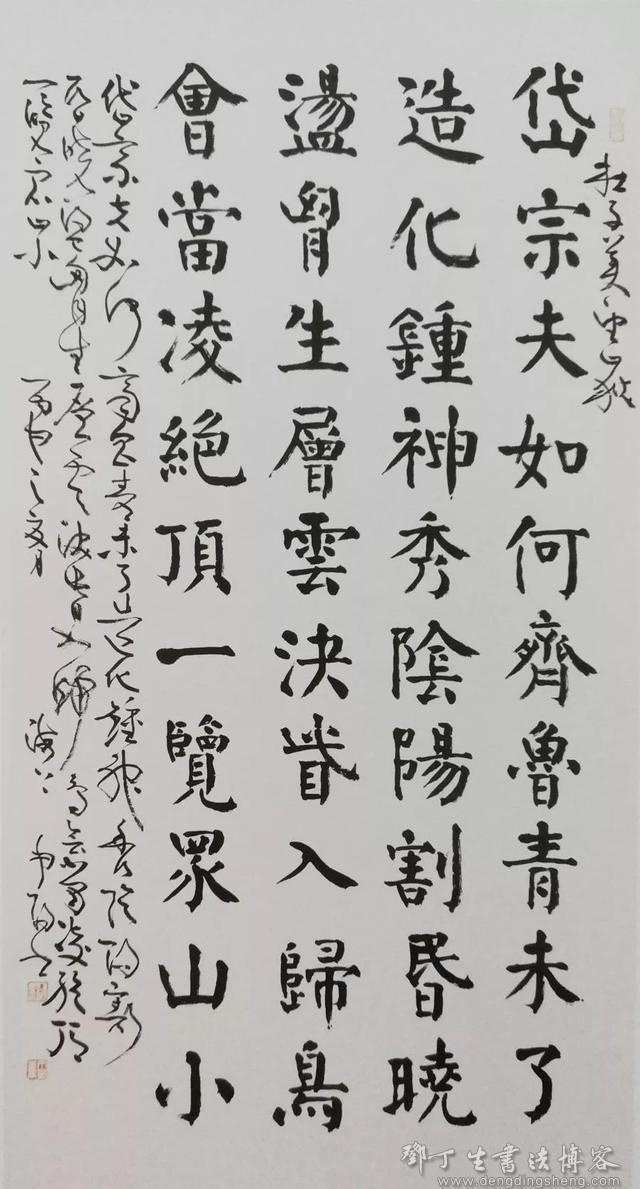 杜子美望嶽
岱宗夫如何齊魯青未了
造化鍾神秀陰陽割昬曉
盪胷生層雲決眥入歸鳥
會當凌絕頂一覽眾山小
岱宗夫如何齊魯青未了造化鍾神秀陰陽割
昏曉盪胸生層雲決眥入歸鳥會當凌絕頂
一覽眾山小 丙申之夏月
鄧丁生書法博客
www.dengdingsheng.com